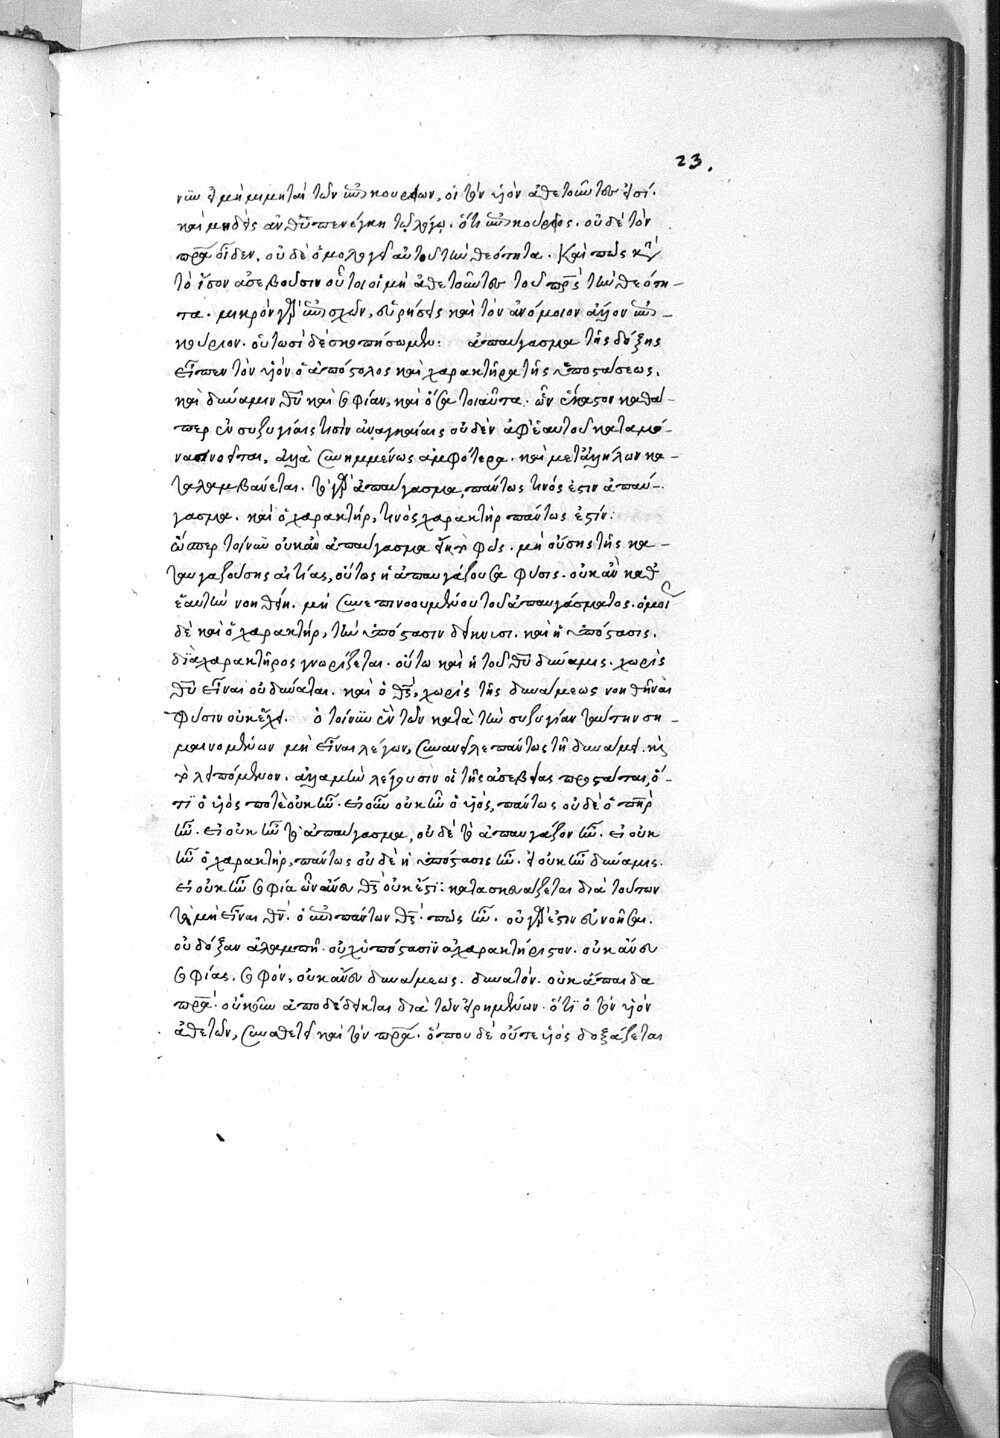 23.
νῦν εἰ μὴ μιμηταὶ τῶν ἐπικουρείων, οἱ τὸν υἱὸν ἀθετοῦντες εἰσί.
καὶ μηδεὶς ἀνθυπενέγκῃ τῷ λόγῳ. ὅτι ἐπίκουρος. οὐδὲ τὸν
πρα οἶδεν, οὐδὲ ὁμολογεῖ αὐτοῦ τὴν θεότητα. Καὶ πῶς κατὰ
τὸ ἴσον ἀσεβοῦσιν οὗτοι οἱ μὴ ἀθετοῦντες τοῦ πρς τὴν θεότη-
τα. μικρὸν γὰρ ἐπισχὼν, εὑρήσεις καὶ τὸν ἀνόμοιον ἄλλον ἐπί-
κουρον. οὑτωσὶ δὲ σκοπήσωμεν: ἀπαύγασμα τῆς δόξης
εἶπεν τὸν υἱὸν ὁ ἀπόστολος καὶ χαρακτῆρα τῆς ὑποστάσεως,
καὶ δύναμιν θυ καὶ σοφίαν, καὶ ὅσα τοιαῦτα. ὧν ἕκαστον καθά-
περ ἐν συζυγίαις τισὶν ἀναγκαίαις οὐδὲν ἀφ' ἑαυτοῦ καταμό-
νας νοεῖται, ἀλλὰ συνημμένως ἀμφότερα. καὶ μετ' ἀλλήλων κα-
ταλαμβάνεται. τὸ γὰρ ἀπαύγασμα, πάντως τινός ἐστιν ἀπαύ-
γασμα. καὶ ὁ χαρακτὴρ, τινὸς χαρακτὴρ πάντως ἐστίν:
ὥσπερ τοίνυν οὐκ ἂν ἀπαύγασμα εἴη τὸ φῶς. μὴ οὔσης τῆς κα-
ταυγαζούσης αἰτίας, οὕτως ἡ ἀπαυγάζουσα φύσις. οὐκ ἂν καθ'
ἑαυτὴν νοηθείη. μὴ συνεπινοουμένου τοῦ ἀπαυγάσματος. ὁμοίως
δὲ καὶ ὁ χαρακτὴρ, τὴν ὑπόστασιν δείκνυσι. καὶ ἡ ὑπόστασις.
διὰ χαρακτῆρος γνωρίζεται. οὕτω καὶ ἡ τοῦ θυ δύναμις. χωρὶς
θυ εἶναι οὐ δύναται. καὶ ὁ θς, χωρὶς τῆς δυνάμεως νοηθῆναι
φύσιν οὐκ ἔχει. ὁ τοίνυν ἓν τῶν κατὰ τὴν συζυγίαν ταύτην ση-
μαινομένων μὴ εἶναι λέγων, συνανεῖλε πάντως τῇ δυνάμει κὶ
τὸ λειπόμενον. ἀλλὰ μὴν λέγουσιν οἱ τῆς ἀσεβείας προστάται, ὅ-
τι ὁ υἱός ποτὲ οὐκ ἦν. εἰ οὖν οὐκ ἦν ὁ υἱός, πάντως οὐδὲ ὁ πηρ
ἦν. εἰ οὐκ ἦν τὸ ἀπαύγασμα, οὐδὲ τὸ ἀπαυγάζον ἦν. εἰ οὐκ
ἦν ὁ χαρακτὴρ, πάντως οὐδὲ ἡ ὑπόστασις ἦν. εἰ οὐκ ἦν δύναμις.
εἰ οὐκ ἦν σοφία ὧν ἄνευ θς οὐκ ἔστι: κατασκευάζεται διὰ τούτων
τὸ μὴ εἶναι θν. ὁ ἐπὶ πάντων θς. πῶς ἦν. οὐ γὰρ ἔστιν εὐνοῆσαι.
οὐ δόξαν ἀλαμπῆ. οὐχ ὑπόστασιν ἀχαρακτήριστον. οὐκ ἄνευ
σοφίας. σοφόν, οὐκ ἄνευ δυνάμεως. δυνατόν. οὐκ ἄπαιδα
πρα. οὐκοῦν ἀποδέδεικται διὰ τῶν εἰρημένων. ὅτι ὁ τὸν υἱὸν
ἀθετῶν, συναθετεῖ καὶ τὸν πρα. ὅπου δὲ οὔτε υἱὸς δοξάζεται